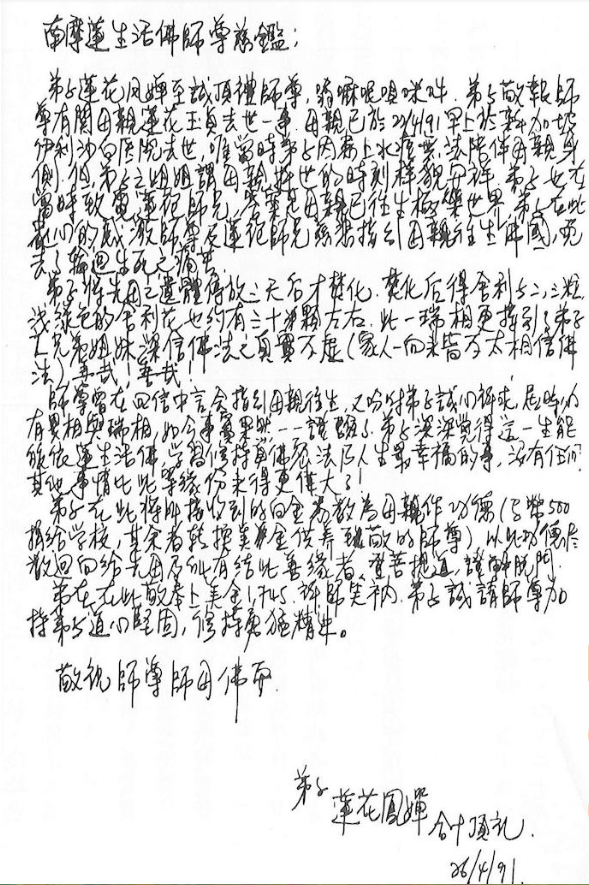 南摩蓮生活佛師尊慈鑑：
弟子蓮花鳳嬋至誠頂禮師尊，嗡嘛呢唄咪吽．弟子敬報師
尊有関母親蓮花王貞去世一事．母親已於2/4/91早上於新加坡
伊利沙白医院去世，唯當時弟子因 法陪伴母親身
側．但，弟子之姐姐謂母親 世的時刻样貌 祥．弟子也在
當時致電蓮紀師兄， 是母親已往生極樂世界．弟子在此
衷心的感激師尊及蓮紀師兄慈悲指引母親往生佛國，免
去了輪迴生死之痛苦．
弟子將先母之遺體停放三天后才焚化．焚化后得舍利子二，三粒，
浅綠色的舍利花也約有三十 顆左右．此一瑞相更接引了弟子
之兄弟姐妹深信佛法之真實不虛（家人一向来皆不太相信佛
法）善哉！善哉！
師尊曾在回信中言会指引母親往生，又吩咐弟子誠心祈求，屆時必
有異相與瑞相，如今事實果然一一證驗了．弟子深深觉得這一生能
能依蓮生活佛学習修持真佛密法乃人生最幸福的事，沒有任何
其他事情比此等缘份来得更偉大了！
弟子在此將所接收到的白金 数為母親作功德（ 幣500
捐給学校，其余者轉換美金供养 敬的師尊）以此功德
数回向給先母及所有結此善緣者，登菩提道，證 解脱門．
弟子在此敬奉上美金1,745．祈師笑衲．弟子誠請師尊加
持弟子道心堅固，修持勇猛精进。
敬祝師尊師母佛安．
弟子
蓮花鳳嬋 合十頂礼．
26/4/91.